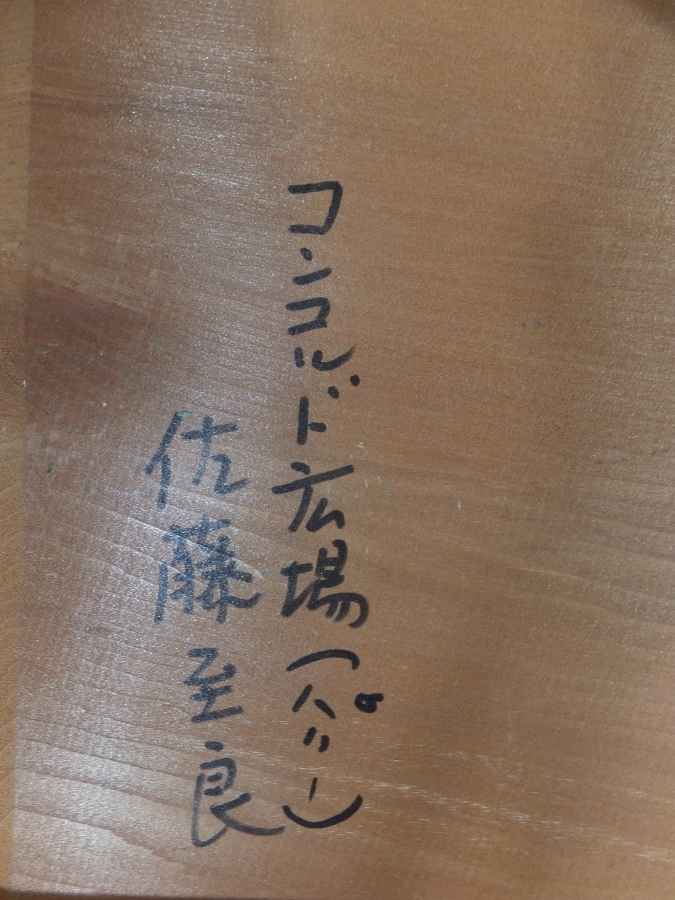 コンコルド広場(パリー)
佐藤至良